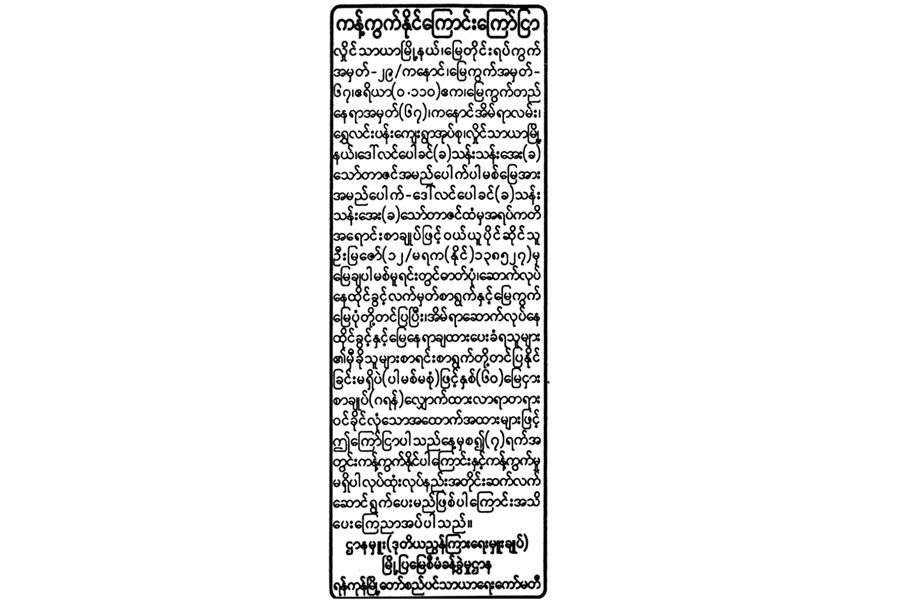 ကန့်ကွက်နိုင်ကြောင်းကြော်ငြာ
လှိုင်သာယာမြို့နယ်၊မြေတိုင်းရပ်ကွက်
အမှတ်-၂၉/ကနောင်၊မြေကွက်အမှတ်-
၆၇၊ဧရိယာ(၀.၁၁၀)ဧက၊မြေကွက်တည်
နေရာအမှတ်(၆၇)၊ကနောင်အိမ်ရာလမ်း၊
ရွှေလင်းပန်းကျေးရွာအုပ်စု၊လှိုင်သာယာမြို့
နယ်၊ဒေါ်လင်ပေါခင်(ခ)သန်းသန်းအေး(ခ)
သော်တာဇင်အမည်ပေါက်ပါမစ်မြေအား
အမည်ပေါက်-ဒေါ်လင်ပေါခင်(ခ)သန်း
သန်းအေး(ခ)သော်တာဇင်ထံမှအရပ်ကတိ
အရောင်းစာချုပ်ဖြင့်ဝယ်ယူပိုင်ဆိုင်သူ
ဦးမြဇော်(၁၂/မရက(နိုင်)၁၃၈၅၂၇)မှ
မြေချပါမစ်မူရင်းတွင်ဓာတ်ပုံ၊ဆောက်လုပ်
နေထိုင်ခွင့်လက်မှတ်စာရွက်နှင့်မြေကွက်
မြေပုံတို့တင်ပြပြီး၊အိမ်ရာဆောက်လုပ်နေ
ထိုင်ခွင့်နှင့်မြေနေရာချထားပေးခံရသူများ
၏မှီခိုသူများစာရင်းစာရွက်တို့တင်ပြနိုင်
ခြင်းမရှိပဲ(ပါမစ်မစုံ)ဖြင့်နှစ်(၆၀)မြေငှား
စာချုပ်(ဂရန်)လျှောက်ထားလာရာတရား
ဝင်ခိုင်လုံသောအထောက်အထားများဖြင့်
ဤကြော်ငြာပါသည့်နေ့မှစ၍(၇)ရက်အ
တွင်းကန့်ကွက်နိုင်ပါကြောင်းနှင့်ကန့်ကွက်မှု
မရှိပါလုပ်ထုံးလုပ်နည်းအတိုင်းဆက်လက်
ဆောင်ရွက်ပေးမည်ဖြစ်ပါကြောင်းအသိ
ပေးကြေညာအပ်ပါသည်။
ဌာနမှူး(ဒုတိယညွှန်ကြားရေးမှူးချုပ်)
မြို့ပြမြေစီမံခန့်ခွဲမှုဌာန
ရန်ကုန်မြို့တော်စည်ပင်သာယာရေးကော်မတီ